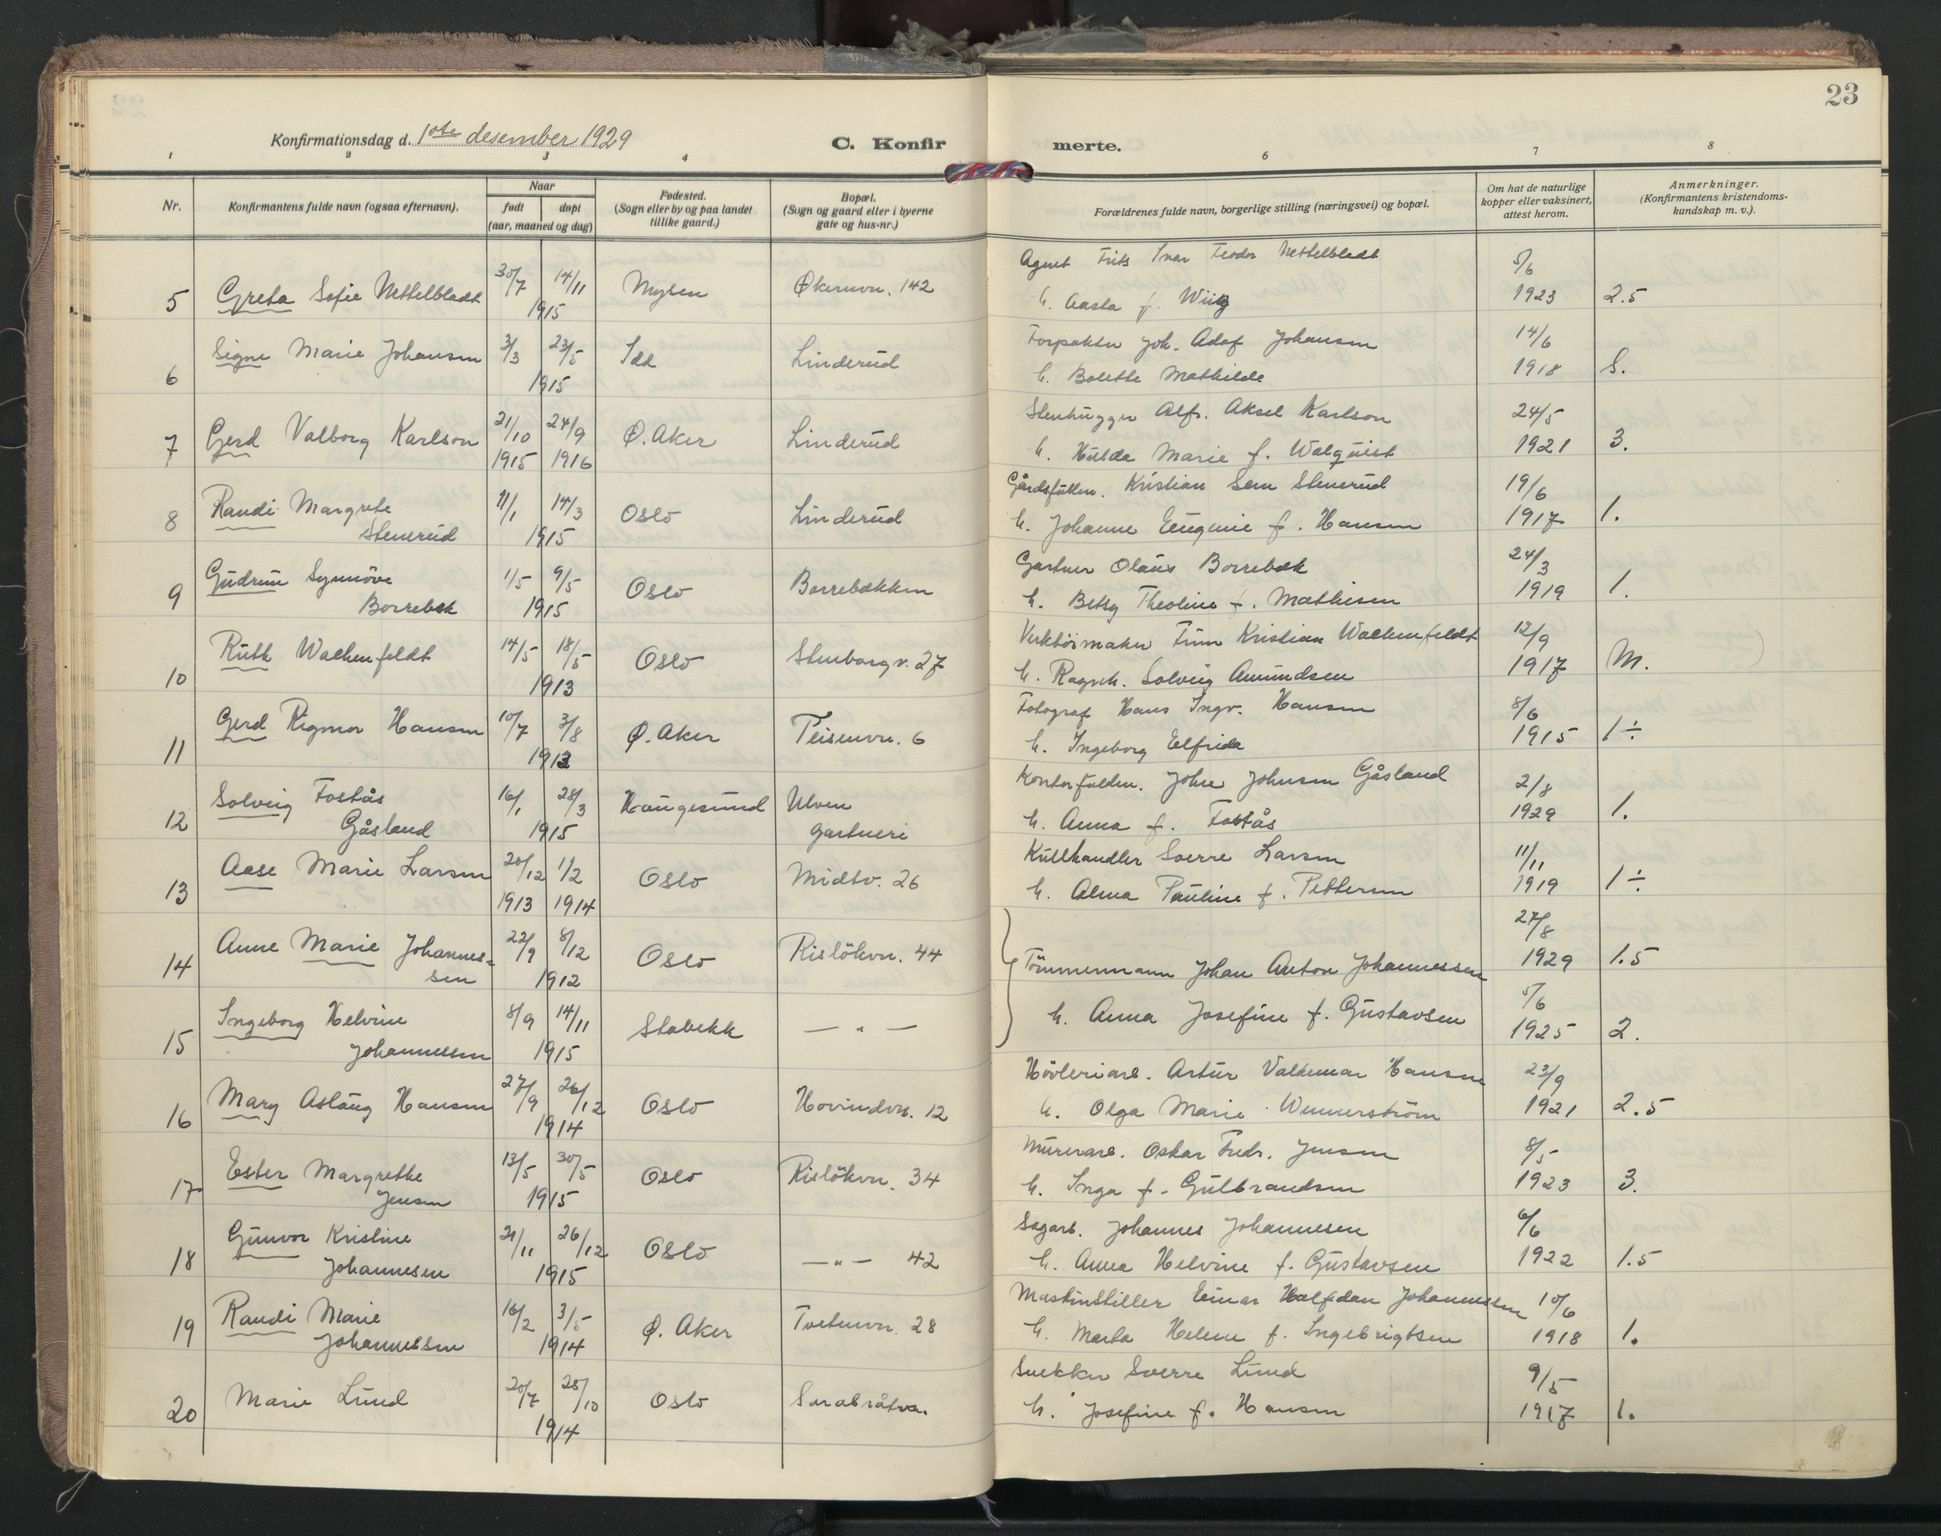 23
Konfirmationsdag d. 1ste desember 1929
C. Konfirmerte.
1 2 3 4 6 7 8
Nr. Konfirmantens fulde navn (ogsaa efternavn). Naar født døpt (aar, maaned og dag) Fødested. (Sogn eller by og paa landet tillike gaard.) Bopæl. (Sogn og gaard eller i byerne gate og hus-nr.) Forældrenes fulde navn, borgerlige stilling (næringsvei) og bopæl. Om hat de naturlige kopper eller vaksinert, attest herom. Anmerkninger. (Konfirmantens kristendomskundskap m. v.).
5 Greta Sofie Nettelbladt 30/7 14/11 1915 Mysen Økernvn. 142 Agent Frits Ivar Teodor Nettelbladt 5/6
h. Aasta f. Wiig 1923 2.5
6 Signe Marie Johansen 3/3 23/5 1915 Idd Linderud Forpakter Joh. Adof Johansen 14/6
h. Bolette Mathilde 1918 S.
7 Gerd Valborg Karlson 21/10 1915 24/9 1916 Ø. Aker Linderud Stenhugger Alfr. Aksel Karlson 24/5
h. Hulda Marie f. Walquist 1921 3.
8 Randi Margrete Stenerud 11/1 14/3 1915 Oslo Linderud Gårdsfullm. Kristian Sem Stenerud 19/6
h. Johanne Eugenie f. Hansen 1917 1.
9 Gudrun Synnöve Borrebæk 1/5 9/5 1915 Oslo Borrebækken Gartner Olaus Borrebæk 24/3
h. Betsy Theoline f. Mathisen 1919 1.
10 Ruth Walkenfeldt 14/5 18/5 1913 Oslo Stenborgv. 27 Verktöimaker Finn Kristian Walkenfeldt 12/9
h. Ragnh. Solveig Amundsen 1917 M.
11 Gerd Rigmor Hansen 10/7 3/8 1913 Ø. Aker Teisenvn. 6 Fotograf Hans Ingv. Hansen 8/6
h. Ingeborg Elfrida 1915 1÷
12 Solveig Fostås Gåsland 16/1 28/3 1915 Haugesund Ulven gartneri Kontorfuldm. Johs Johnsen Gåsland 2/8
h. Anna f. Fostås 1929 1.
13 Aase Marie Larsen 20/12 1913 1/2 1914 Oslo Midtv. 26 Kullhandler Sverre Larsen 11/11
h. Alma Pauline f. Pettersen 1919 1÷
14 Anne Marie Johannessen 22/9 8/12 1912 Oslo Rislökvn. 44 Tömmermann Johan Anton Johannessen 27/8 1929 1.5
15 Ingeborg Helvine Johannessen 8/9 14/11 1915 Stabekk — " — h. Anna Josefine f. Gustavsen 5/6 1925 2.
16 Mary Aslaug Hansen 27/9 26/12 1914 Oslo Hovindvn. 12 Hövleriarb. Artur Valdemar Hansen 23/9
h. Olga Marie Wennerström 1921 2.5
17 Ester Margrethe Jensen 13/5 30/5 1915 Oslo Rislökvn. 34 Murerarb. Oskar Fredr. Jensen 8/5
h. Inga f. Gulbrandsen 1923 3.
18 Gunvor Kristine Johannesen 21/11 26/12 1915 Oslo — " — 42 Sagarb. Johannes Johannesen 6/6
h. Anna Helvine f. Gustavsen 1922 1.5
19 Randi Marie Johannessen 16/2 3/5 1914 Ø. Aker Tvetenvn. 28 Maskinstiller Einar Halfdan Johannessen 10/6
h. Marta Helene f. Ingebrigtsen 1918 1.
20 Marie Lund 20/7 25/10 1914 Oslo Sarabråtvn. Snekker Sverre Lund 9/5
h. Josefine f. Hansen 1917 1.